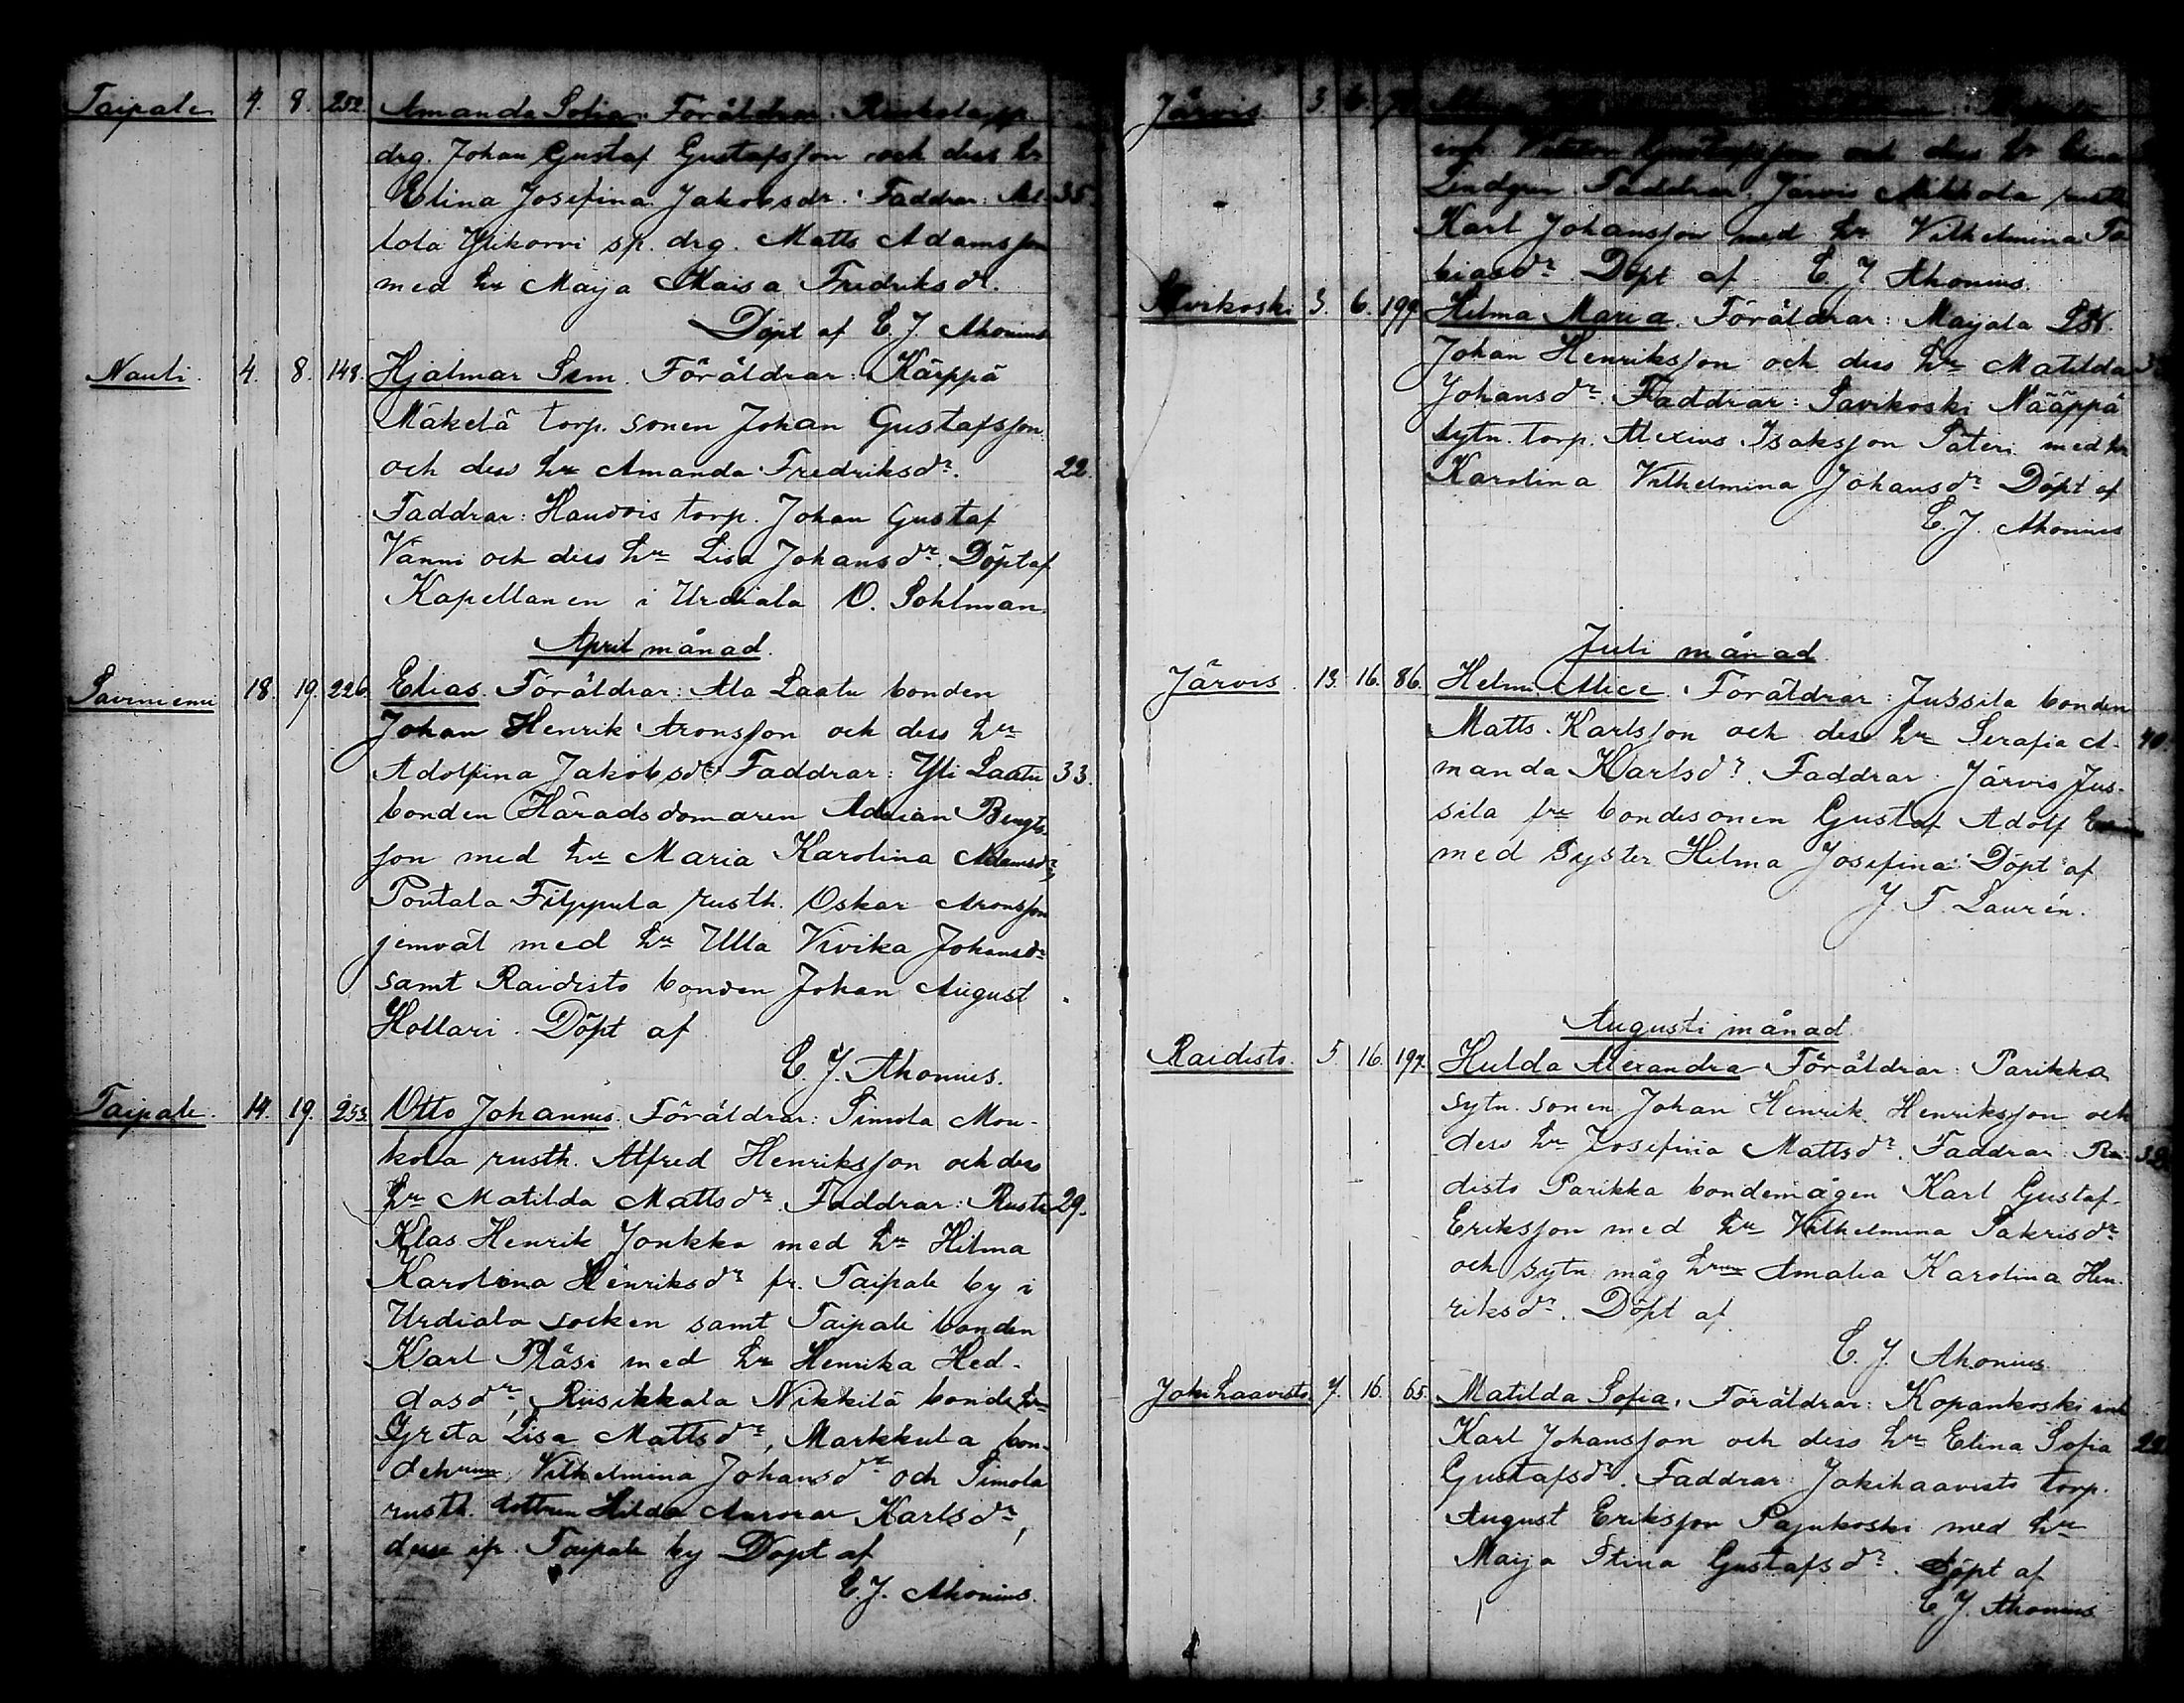 Taipale 4. 8. 252. Amanda Sofia. Föräldrar:
drg. Johan Gustaf Gustafsson och dess hr
Elina Josefina Jakobsdr. Faddrar: 35.
lola Ylikorvi sp. drg. Matts Adamsson
med hr Maija Kaisa Fredriksdr.
Döpt af E. J. Ahonius
Nauli. 4. 8. 148. Hjalmar Sem. Föräldrar: Kärppä
Mäkelä torp. sonen Johan Gustafsson
och dess hr Amanda Fredriksdr. 22.
Faddrar: Hauvois torp. Johan Gustaf
Vänni och dess hr Lisa Johansdr. Döpt af
Kapellanen i Urdiala O. Sohlman.
April månad.
Saviniemi 18. 19. 226. Elias. Föräldrar: Ala Laatu bonden
Johan Henrik Aronsson och dess hr
Adolfina Jakobsdr Faddrar: Yli Laatu 33.
bonden Häradsdomaren Adrian Bengts-
son med hr Maria Karolina Adamsdr,
Pontala Filppula rusth. Oskar Aronsson
jemväl med hr Ulla Vivika Johansdr
samt Raidisto bonden Johan August
Hollari. Döpt af
E. J. Ahonius.
Taipale. 14. 19. 253. Otto Johannes. Föräldrar: Simola Mou-
kola rusth. Alfred Henriksson och dess
hr Matilda Mattsdr. Faddrar: Rusth 29.
Klas Henrik Jonkka med hr Hilma
Karolina Henriksdr fr. Taipale by i
Urdiala socken samt Taipale bonden
Karl Pläsi med hr Henrika Hed-
dasdr, Riisikkala Nikkilä bonde hr
Greta Lisa Mattsdr, Markkula bon-
dehrun Vilhelmina Johansdr och Simola
rusth. dottren Hilda Aurora Karlsdr,
desse ifr. Taipale by Döpt af
E. J. Ahonius.
Järvis 3. 6.
och dess hr
Lindgren. Faddrar: Järvis Mikkola rusth
Karl Johansson med hr Vilhelmina To
biasdr Döpt af E. J. Ahonius.
Savikoski 3. 6. 199. Hilma Maria. Föräldrar: Maijala
Johan Henriksson och dess hr Matilda
Johansdr. Faddrar: Savikoski Nääppä
sytn. torp. Alexius Isaksson Säteri med hr
Karolina Vilhelmina Johansdr Döpt af
E. J. Ahonius
Juli månad
Järvis. 13. 16. 86. Helmi Alice. Föräldrar: Jussila bonden
Matts Karlsson och dess hr Serafia A- 40.
manda Karlsdr. Faddrar: Järvis Jus-
sila fre bondesonen Gustaf Adolf
med syster Hilma Josefina Döpt af
J. F. Laurén.
Augusti månad.
Raidisto. 5. 16. 197. Hulda Alexandra Föräldrar: Parikka
sytn. sonen Johan Henrik Henriksson och
dess hr Josefina Mattsdr. Faddrar: Rai- 32.
disto Parikka bondemågen Karl Gustaf
Eriksson med hr Vilhelmina Sakrisdr
och sytn. måg hrun Amalia Karolina Hen-
riksdr. Döpt af
E. J. Ahonius
Jokihaavisto. 7. 16. 65. Matilda Sofia. Föräldrar: Kopankoski
Karl Johansson och dess hr Elina Sofia 22.
Gustafsdr. Faddrar: Jokihaavisto torp.
August Eriksson Pajukoski med hr
Maija Stina Gustafsdr. Döpt af
E. J. Ahonius